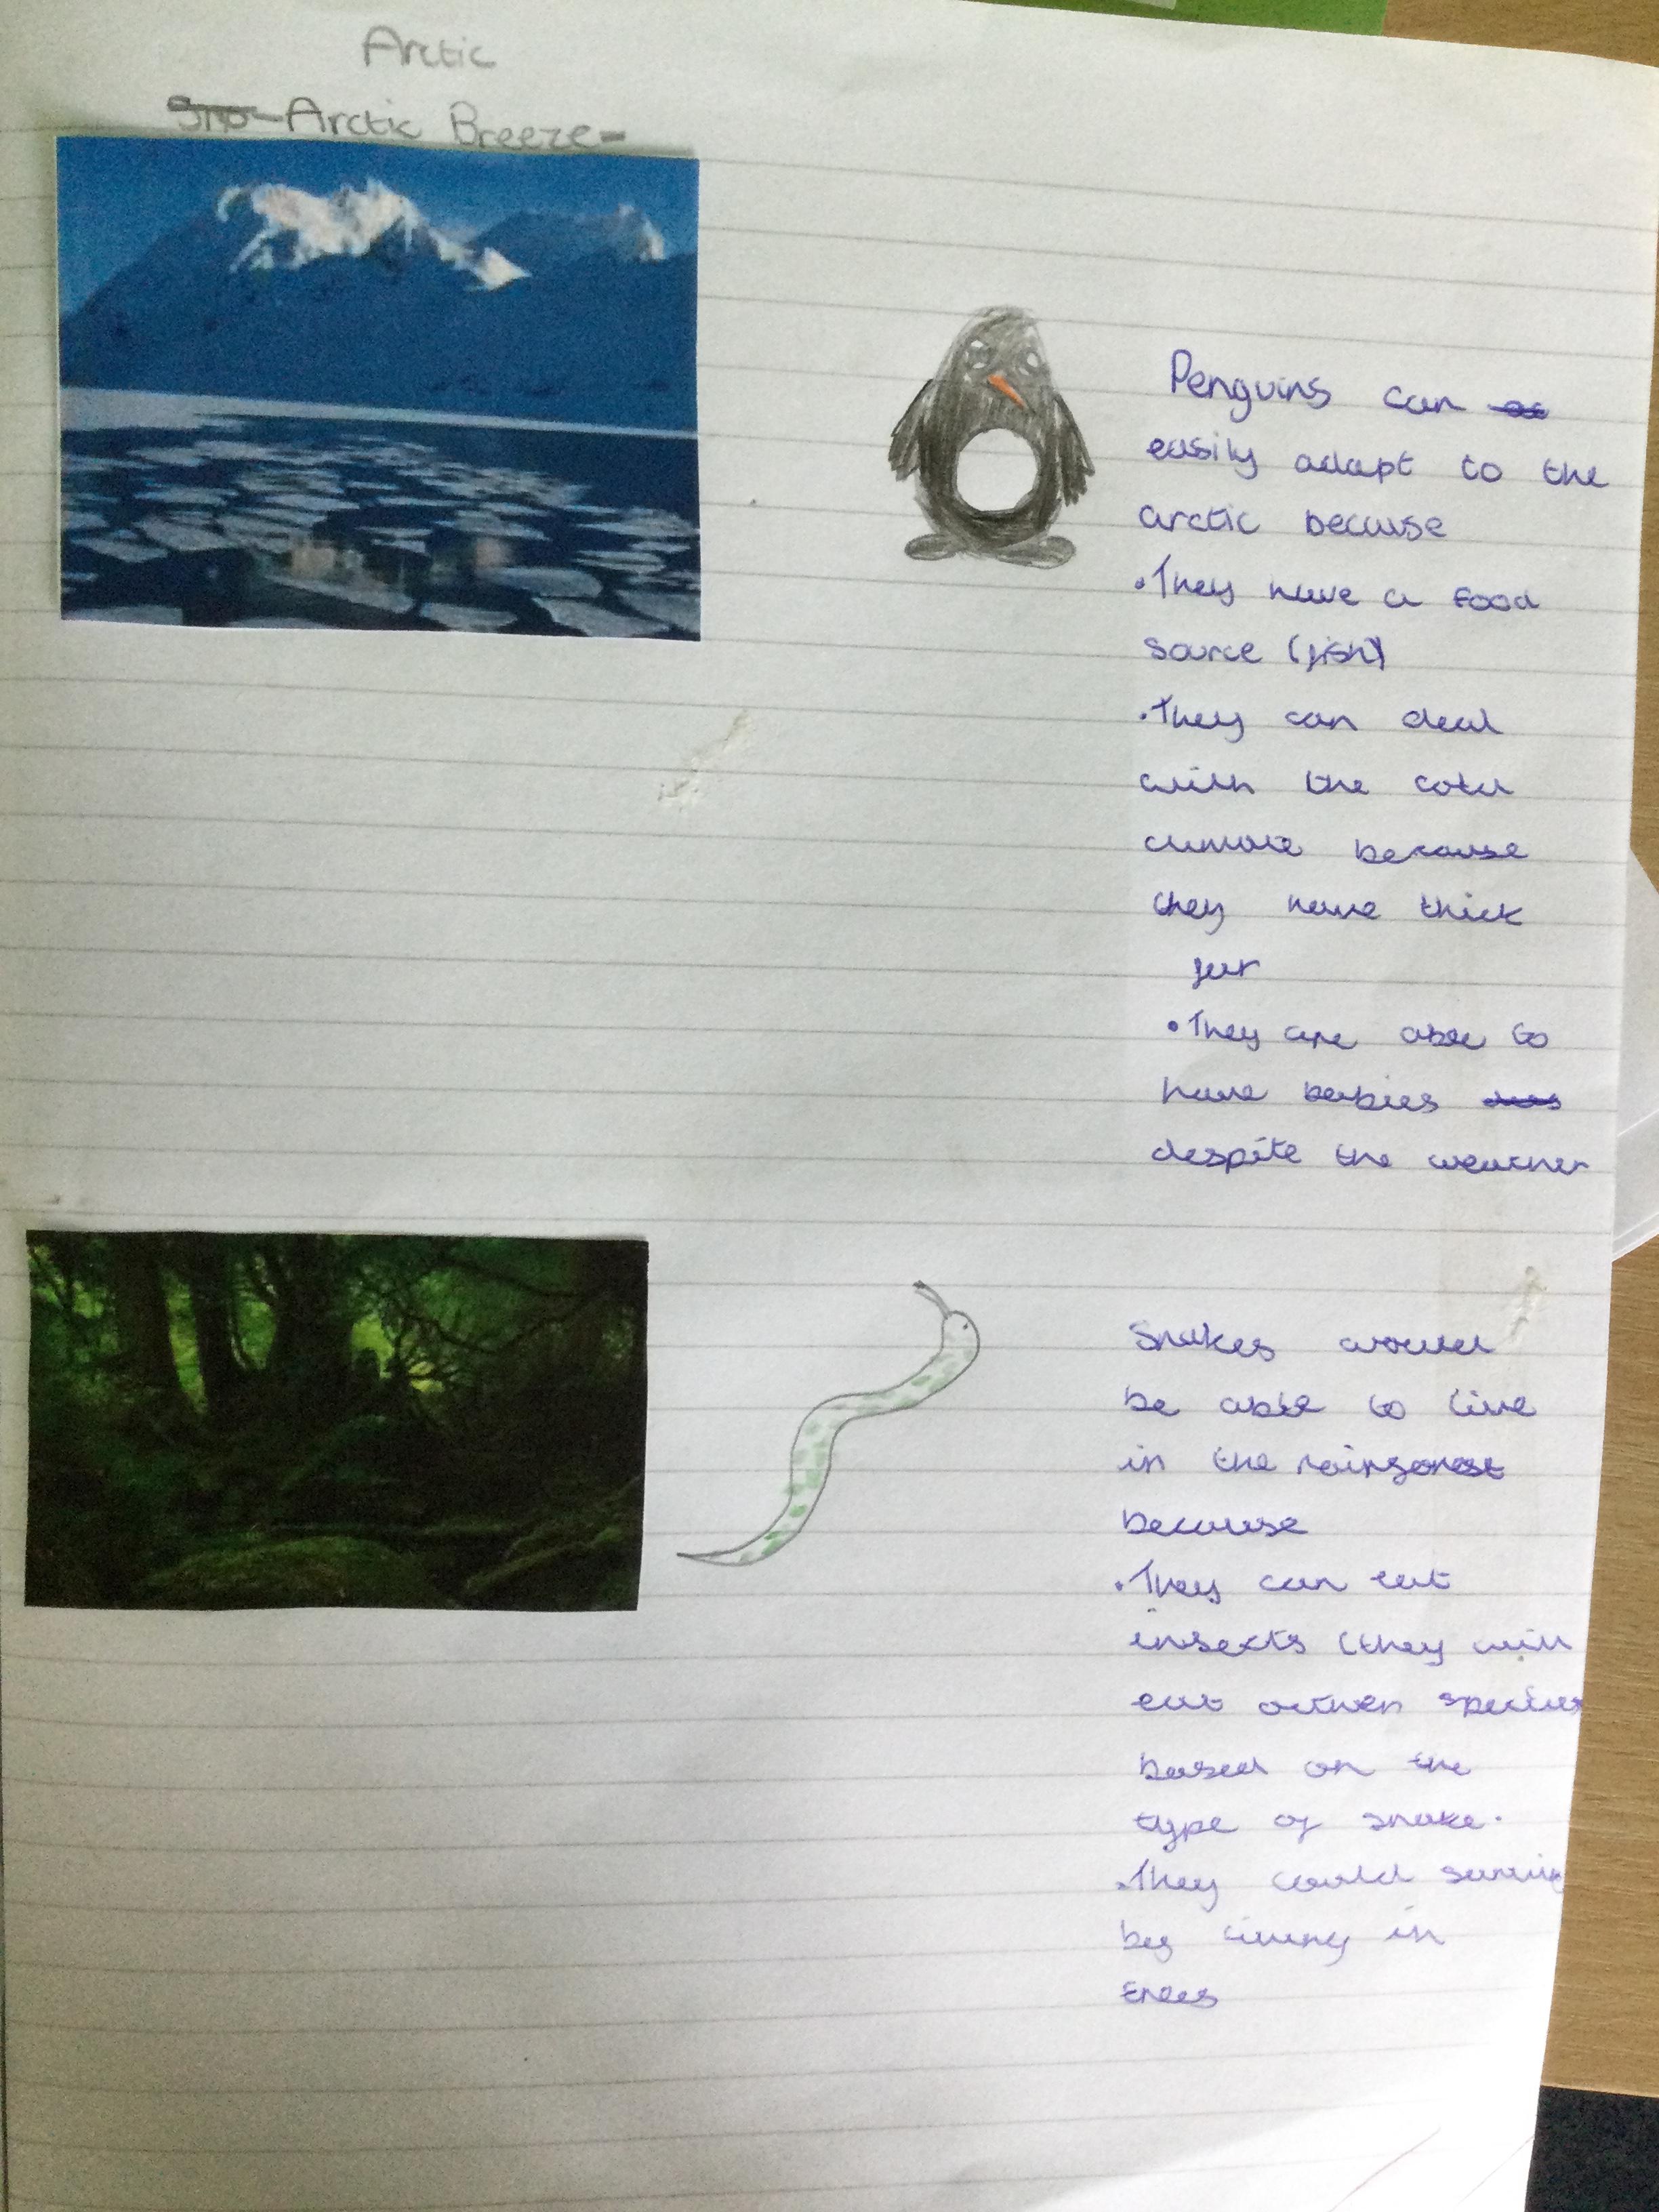 Arctic
Arctic Breeze-
Penguins can
easily adapt to the
arctic because
• They have a food
source (fish)
• They can deal
with the cold
climate because
they have thick
fur
• They are able to
have babies
despite the weather
Snakes would
be able to live
in the rainforest
because
• They can eat
insects (they will
eat other species
based on the
type of snake.
• They could survive
by living in
trees